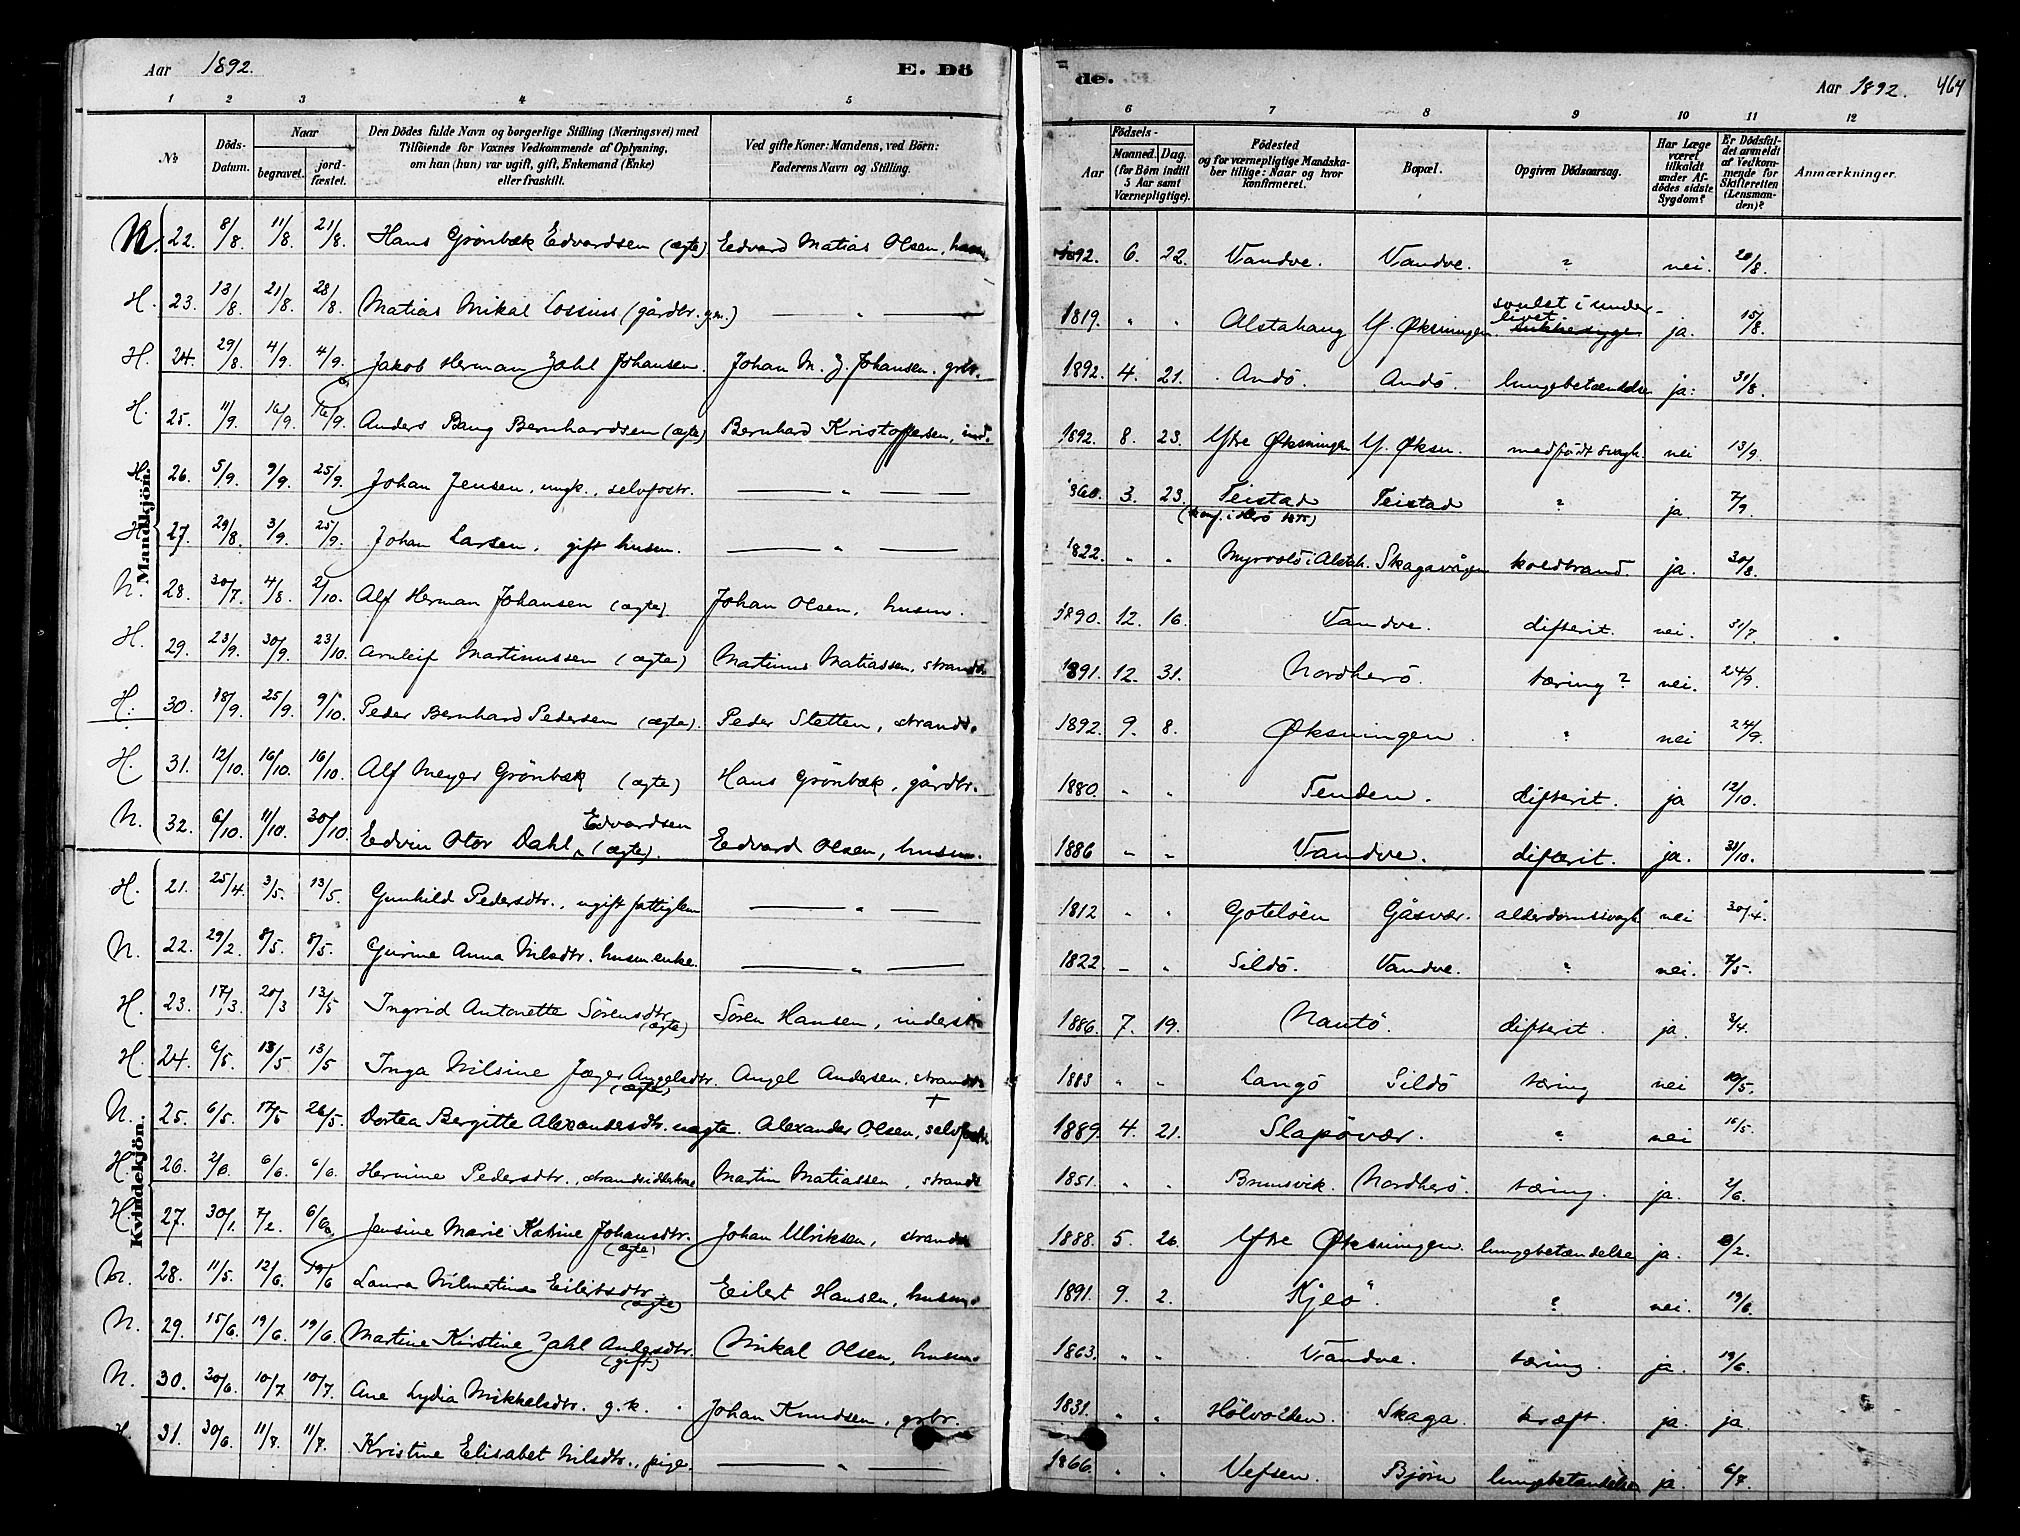 Aar 1892. E. Dö de. Aar 1892. 464
1 2 3 4 5 6 7 8 9 10 11 12
No
Döds-Datum.
Naar
begravet.
jord-fæstet.
Den Dödes fulde Navn og borgerlige Stilling (Næringsvei) med
Tilföiende for Voxnes Vedkommende af Oplysning,
om han (hun) var ugift, gift, Enkemand (Enke)
eller fraskilt.
Ved gifte Koner: Mandens, ved Börn:
Faderens Navn og Stilling.
Födsels-
Aar
Maaned. Dag.
(for Börn indtil
5 Aar samt
Værnepligtige).
Födested
og for værnepligtige Mandska-
ber tillige: Naar og hvor
konfirmeret.
Bopæl.
Opgiven Dödsaarsag.
Har Læge
været
tilkaldt
under Af-
dödes sidste
Sygdom?
Er Dödsfal-
det anmeldt
af Vedkom-
mende for
Skifteretten
(Lensman-
den)?
Anmærkninger.
Mandkjön.
N. 22. 8/8. 11/8. 21/8. Hans Grönbæk Edvardsen (ægte) Edvard Matias Olsen, husm. 1892. 6. 22. Vandve. Vandve. ? nei. 20/8.
H. 23. 13/8 21/8. 28/8. Matias Mikal Lossius (gårdbr. gm.) — " — 1819. " " Alstahaug Y. Öksningen svulst i under-livet ja. 15/8.
H. 24. 29/8 4/9. 4/9. Jakob Herman Zahl Johansen. Johan M. Z. Johansen. grbr. 1892. 4. 21. Andö. Andö. lungebetændelse ja. 31/8.
H. 25. 11/9. 16/9. 16/9. Anders Bang Bernhardsen (ægte) Bernhard Kristoffersen, ind. 1892. 8. 23. Ytre Øksningen Y. Øksn. medfödt svagh. nei 13/9.
H. 26. 5/9. 9/9. 25/9. Johan Jensen, ungk., selvfostr. — " — 1860. 3. 23. Teistad (konf. i Herö 1875) Teistad ? ja. 7/9.
H. 27. 29/8. 3/9. 25/9. Johan Larsen, gift husm. — " — 1822. " " Myrvold i Alstah. Skagavågen koldbrand. ja. 30/8.
N. 28. 30/7. 4/8. 2/10. Alf Herman Johansen (ægte) Johan Olsen, husm. 1890. 12. 16. Vandve. difterit. nei. 31/7.
H. 29. 23/9. 30/9. 23/10. Arnleif Martinussen (ægte) Martinus Matiassen, strands. 1891. 12. 31. Nordherö. tæring? nei. 24/9.
H. 30. 18/9. 25/9. 9/10. Peder Bernhard Pedersen (ægte). Peder Sletten, strands. 1892. 9. 8. Øksningen. ? nei 24/9.
H. 31. 12/10. 16/10. 16/10. Alf Meyer Grönbæk (ægte) Hans Grönbæk, gårdbr. 1880. " " Tenden. difterit. ja 12/10.
N. 32. 6/10. 11/10. 30/10. Edvin Otor Dahl Edvardsen (ægte). Edvard Olsen, husm. 1886 " " Vandve. difterit. ja. 31/10.
Kvindekjön.
H. 21. 25/4. 3/5. 13/5. Gunhild Pedersdtr., ugift fattiglem — " — 1812 " " Goteløen Gåsvær. alderdomssvagh. nei 30/4.
N. 22. 29/2. 8/5. 8/5. Gurine Anna Nilsdtr. husm.enke. — " — 1822. " " Sildö. Vandve. ? nei. 7/5.
H. 23. 17/3. 20/3 13/5 Ingrid Antonette Sörensdtr. (ægte) Sören Hansen, inderst. 1886. 7. 19. Nautö. difterit. ja 3/4.
H. 24. 6/5. 13/5 13/5 Inga Nilsine Jæger Angelsdtr. (ægte) Angel Andersen, strands. 1883 " " Langö Sildö tæring nei 10/5.
N. 25. 6/5. 17/5 26/5. Dortea Bergitte Alexandersdtr. uægte. Alexander Olsen, † selvfostr. 1889. 4. 21. Slapövær. ? nei 16/5.
H. 26. 2/6. 6/6. 6/6. Hermine Pedersdtr., strandsidderkone Martin Matiassen, strands. 1851. " " Brunsvik. Nordherö. tæring. ja. 2/6.
H. 27. 30/1. 7/2. 6/6. Jensine Marie Katrine Johansdtr. (ægte) Johan Ulriksen, strands. 1888. 5. 26. Ytre Øksningen. lungebetændelse ja. 8/2.
N. 28. 11/5. 12/6. 19/6 Laura Vilmertine Eilertsdtr. (ægte) Eilert Hansen, husm. 1891. 9. 2. Kjeö. ? nei. 19/6
N. 29. 15/6. 19/6. 19/6. Martine Kirstine Zahl Andersdtr. (gift) Mikal Olsen, husm. 1863. " " Vandve. tæring. ja. 19/6
N. 30. 30/6. 10/7 10/7. Ane Lydia Mikkelsdtr. g.k. Johan Knudsen, grbr. 1831. " " Hölvolden. Skaga kræft. ja. ja.
H. 31. 30/6. 11/7. 11/7. Kristine Elisabet Nilsdtr., pige. — " — 1866. " " Vefsen. Bjørn lungebetændelse ja. 6/7